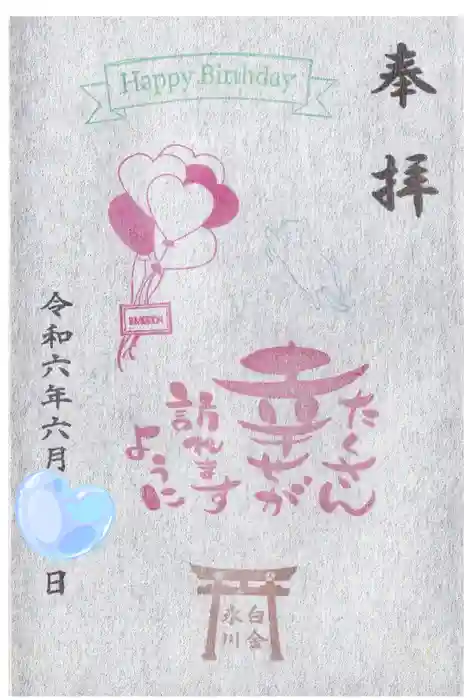 Happy Birthday
奉拝
たくさん
幸せが
訪れます
ように
令和六年六月
日
白金
氷川